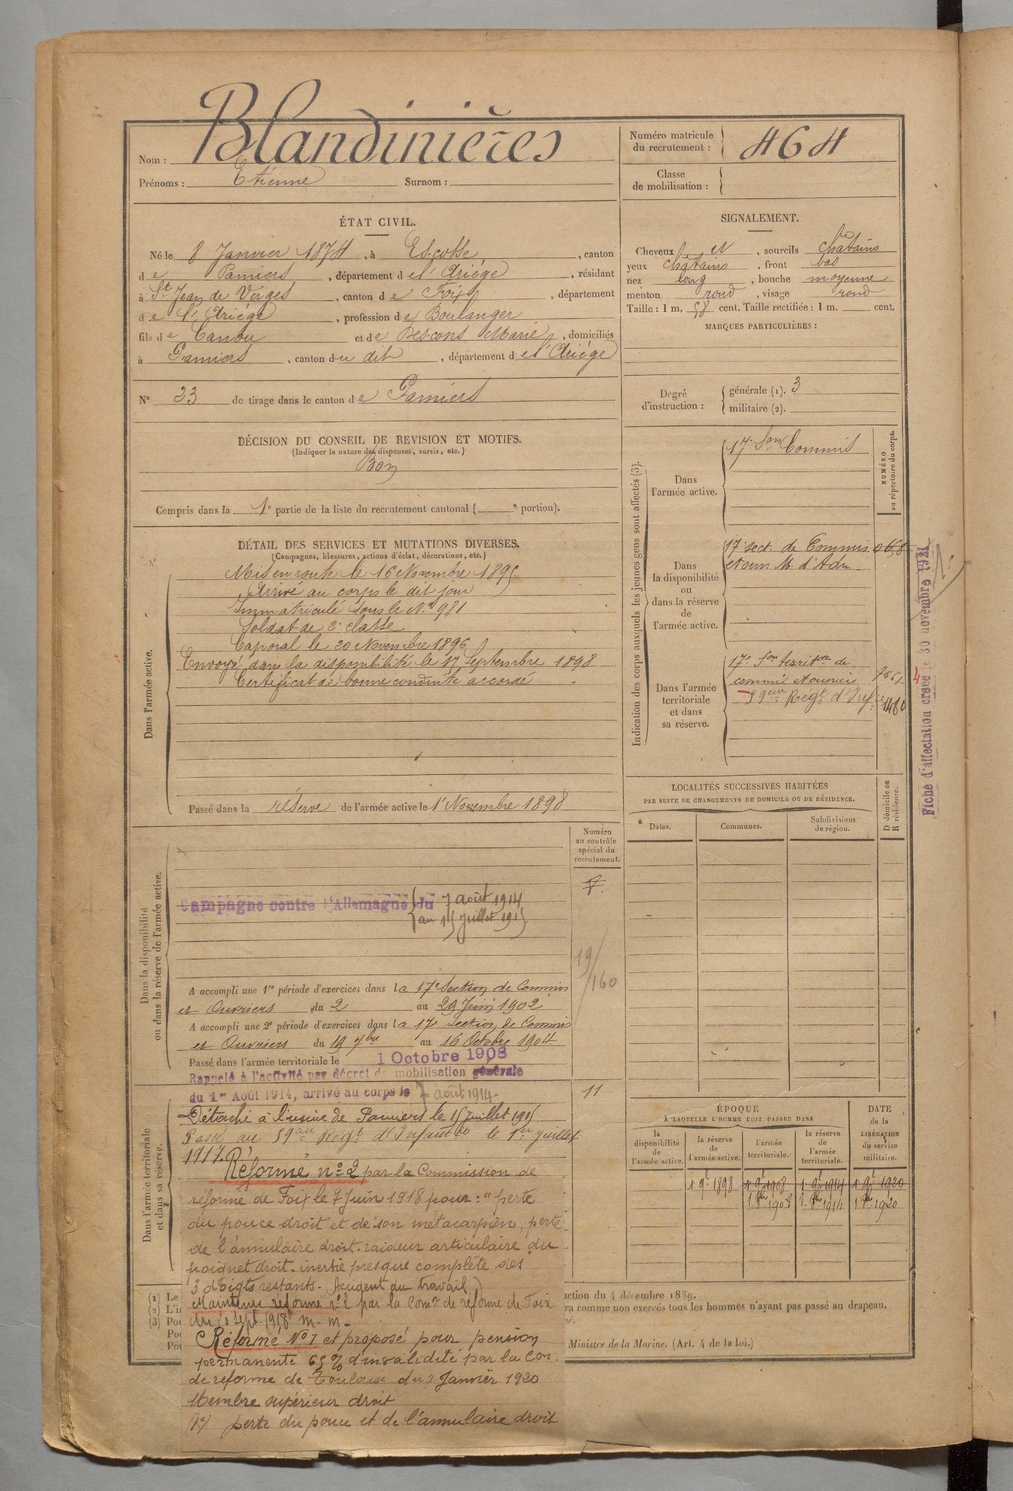 Nom : Blandinières
Prénoms : Etienne Surnom :
Numéro matricule
du recrutement : 464
Classe
de mobilisation :
ÉTAT CIVIL.
Né le 8 Janvier 1874, à Escosse, canton
de Pamiers, département de l'Ariège, résidant
à St Jean de Verges, canton de Foix, département
de l'Ariège, profession de Boulanger
fils de et de Descons Marie, domiciliés
à Pamiers, canton du dit, département de l'Ariège
N° 33 de tirage dans le canton de Pamiers
SIGNALEMENT.
Cheveux et, sourcils châtains
yeux châtains, front bas
nez long, bouche moyenne
menton rond, visage rond
Taille : 1 m. 58 cent. Taille rectifiée : 1 m. cent.
MARQUES PARTICULIÈRES :
Degré
d'instruction :
générale (1). 3
militaire (2).
DÉCISION DU CONSEIL DE REVISION ET MOTIFS.
(Indiquer la nature des dispenses, sursis, etc.)
Bon
Compris dans la 1e partie de la liste du recrutement cantonal ( e portion).
DÉTAIL DES SERVICES ET MUTATIONS DIVERSES.
(Campagnes, blessures, actions d'éclat, décorations, etc.)
Dans l'armée active.
Mis en route le 16 Novembre 1895
Arrivé au corps le dit jour
Immatriculé sous le N° 981
Soldat de 2e classe
Caporal le 20 Novembre 1896
Envoyé dans la disponibilité le 17 Septembre 1898
Certificat de bonne conduite accordé
Passé dans la réserve de l'armée active le 1er Novembre 1898
Indication des corps auxquels les jeunes gens sont affectés (3).
NUMÉRO
au répertoire du corps.
Dans
l'armée active.
17e Son Commis
Dans
la disponibilité
ou
dans la réserve
de
l'armée active.
17e sect. de Commis
et ouv. M. d'Adm
Dans l'armée
territoriale
et dans
sa réserve.
17e Son territle de
commis et ouvriers
59eme Regt d'Infie
Fiche d'affectation créée le 30 novembre 1921
LOCALITÉS SUCCESSIVES HABITÉES
PAR SUITE DE CHANGEMENTS DE DOMICILE OU DE RÉSIDENCE.
D domicile ou
R résidence.
Dates. Communes. Subdivisions
de région.
Numéro
au contrôle
spécial du
recrutement.
Dans la disponibilité
ou dans la réserve de l'armée active.
Campagne contre l'Allemagne du 7 août 1914
au 15 juillet 1915
19/160
A accompli une 1re période d'exercices dans la 17e Section de Commis
et Ouvriers du 2 au 29 Juin 1902
A accompli une 2e période d'exercices dans la 17e Section de Commis
et Ouvriers du 19 7bre au 16 Octobre 1904
Passé dans l'armée territoriale le 1 Octobre 1908
Rappelé à l'activité par décret de mobilisation générale
du 1er Août 1914, arrivé au corps le 7 août 1914.
11
Dans l'armée territoriale
et dans sa réserve.
Détaché à l'usine de Pamiers le 15 juillet 1915
Passé au 59eme Regt d'Infanterie le 1er juillet
1917. Réformé n° 2 par la Commission de
réforme de Foix le 7 Juin 1918 pour : "perte
du pouce droit et de son métacarpien, perte
de l'annulaire droit - raideur articulaire du
poignet droit - inertie presque complète des
3 doigts restants - Accident du travail
Maintenu réformé n° 2 par la Comon de réforme de Foix
du 10 Sept. 1918 m. m.
Réformé N° 1 et proposé pour pension
permanente 65 % d'invalidité par la Con.
de réforme de Toulouse du 2 Janvier 1920
Membre supérieur droit
1°/ perte du pouce et de l'annulaire droit
ÉPOQUE
À LAQUELLE L'HOMME DOIT PASSER DANS
DATE
de la
LIBÉRATION
du service
militaire.
la
disponibilité
de
l'armée active.
la réserve
de
l'armée active.
l'armée
territoriale.
la réserve
de
l'armée
territoriale.
1 9e 1898 1 9e 1908 1 9e 1914 1 9e 1920
1 8e 1908 1 8e 1914 1 8e 1920
(1) Le
(2) L'in
(3) Pou
Pou
Pou
ction du 4 décembre 1889.
ra comme non exercés tous les hommes n'ayant pas passé au drapeau.
Ministre de la Marine. (Art. 4 de la loi.)